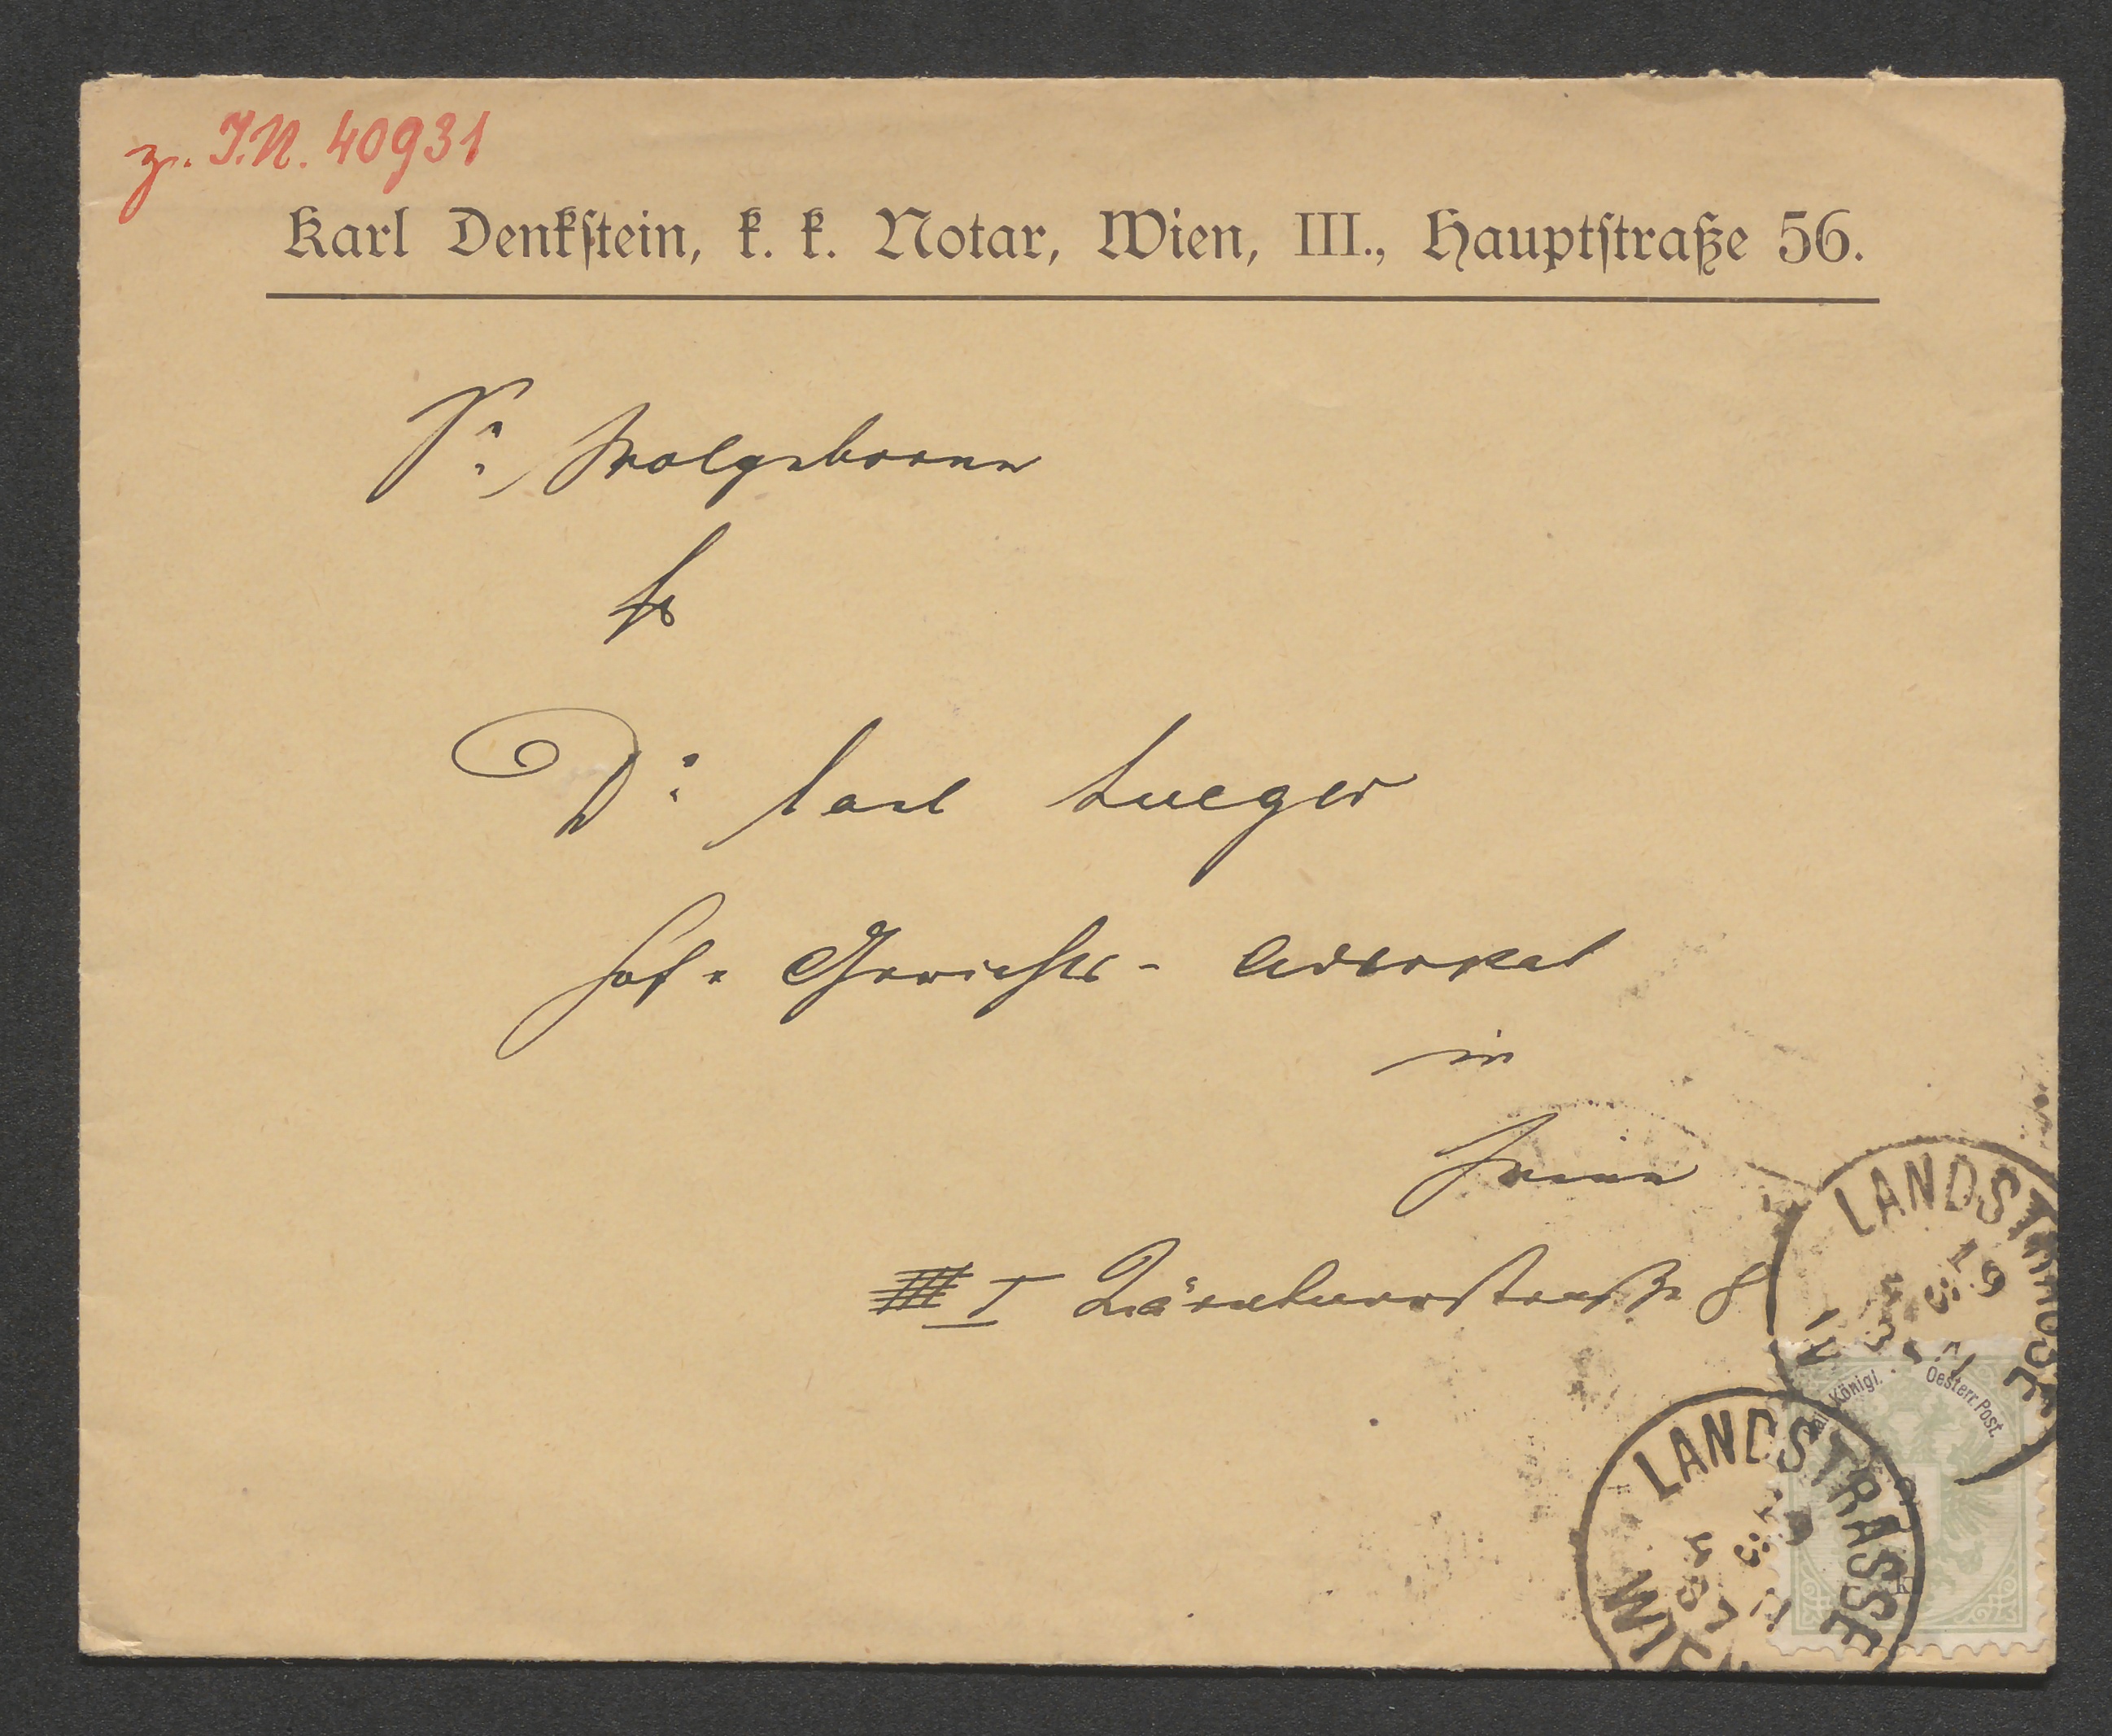 z. I.N. 40931
Karl Denkstein, k. k. Notar, Wien, III., Hauptstraße 56.
Sr. Wolgeboren
H
Dr. Carl Lueger
Hof- Gerichts- Advokat
in
Wien
I Kärntnerstraße 8
LANDSTRASSE
Königl. Oesterr. Post.
LANDSTRASSE
WIEN